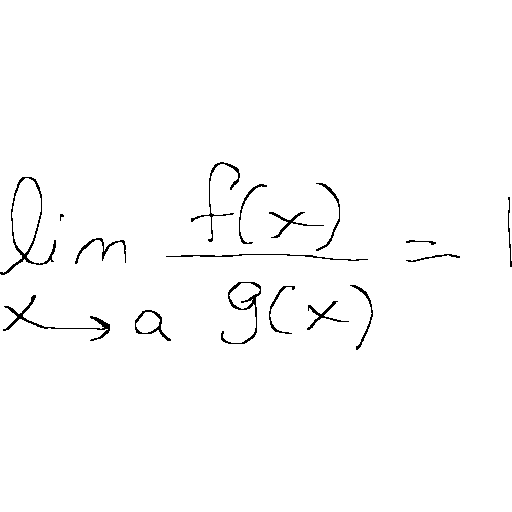 \lim_{x \to a} \frac{f(x)}{g(x)} = 1